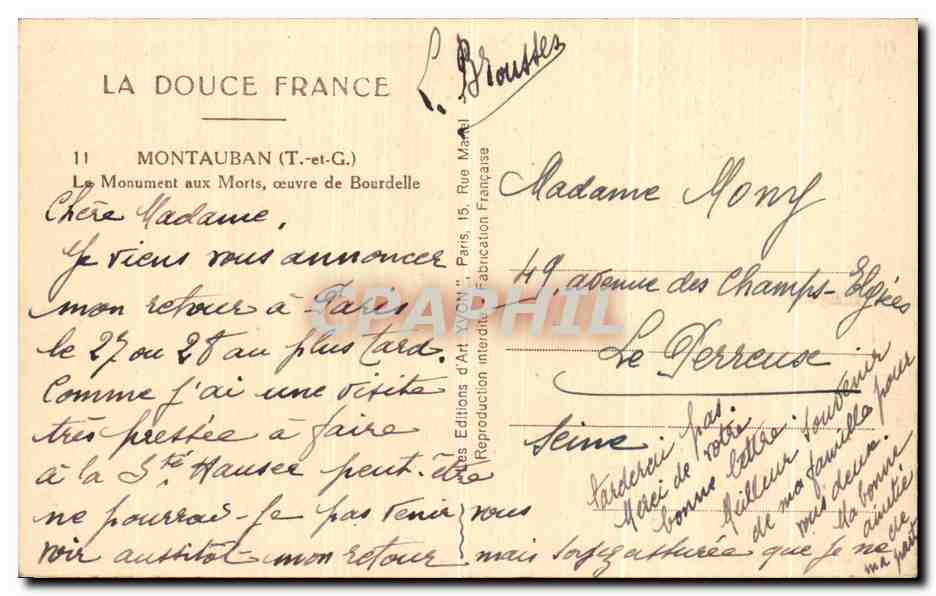 LA DOUCE FRANCE
11 MONTAUBAN (T.-et-G.)
Le Monument aux Morts, œuvre de Bourdelle
L. Brousses
Chère Madame,
Je viens vous annoncer
mon retour à Paris
le 27 ou 28 au plus tard.
Comme j'ai une visite
très pressée à faire
à la Sté Hausee peut-être
ne pourrai-je pas venir vous
voir aussitôt mon retour mais soyez assurée que je ne
tarderai pas.
Merci de votre
bonne lettre.
Meilleur souvenir
de ma famille pour
vous deux.
Ma bonne
amitié
de
ma part
Les Editions d'Art "YVON", Paris, 15, Rue Martel
Reproduction interdite Fabrication Française
Madame Mony
49, avenue des Champs-Elysées
Le Perreux
Seine
CPAPHIL